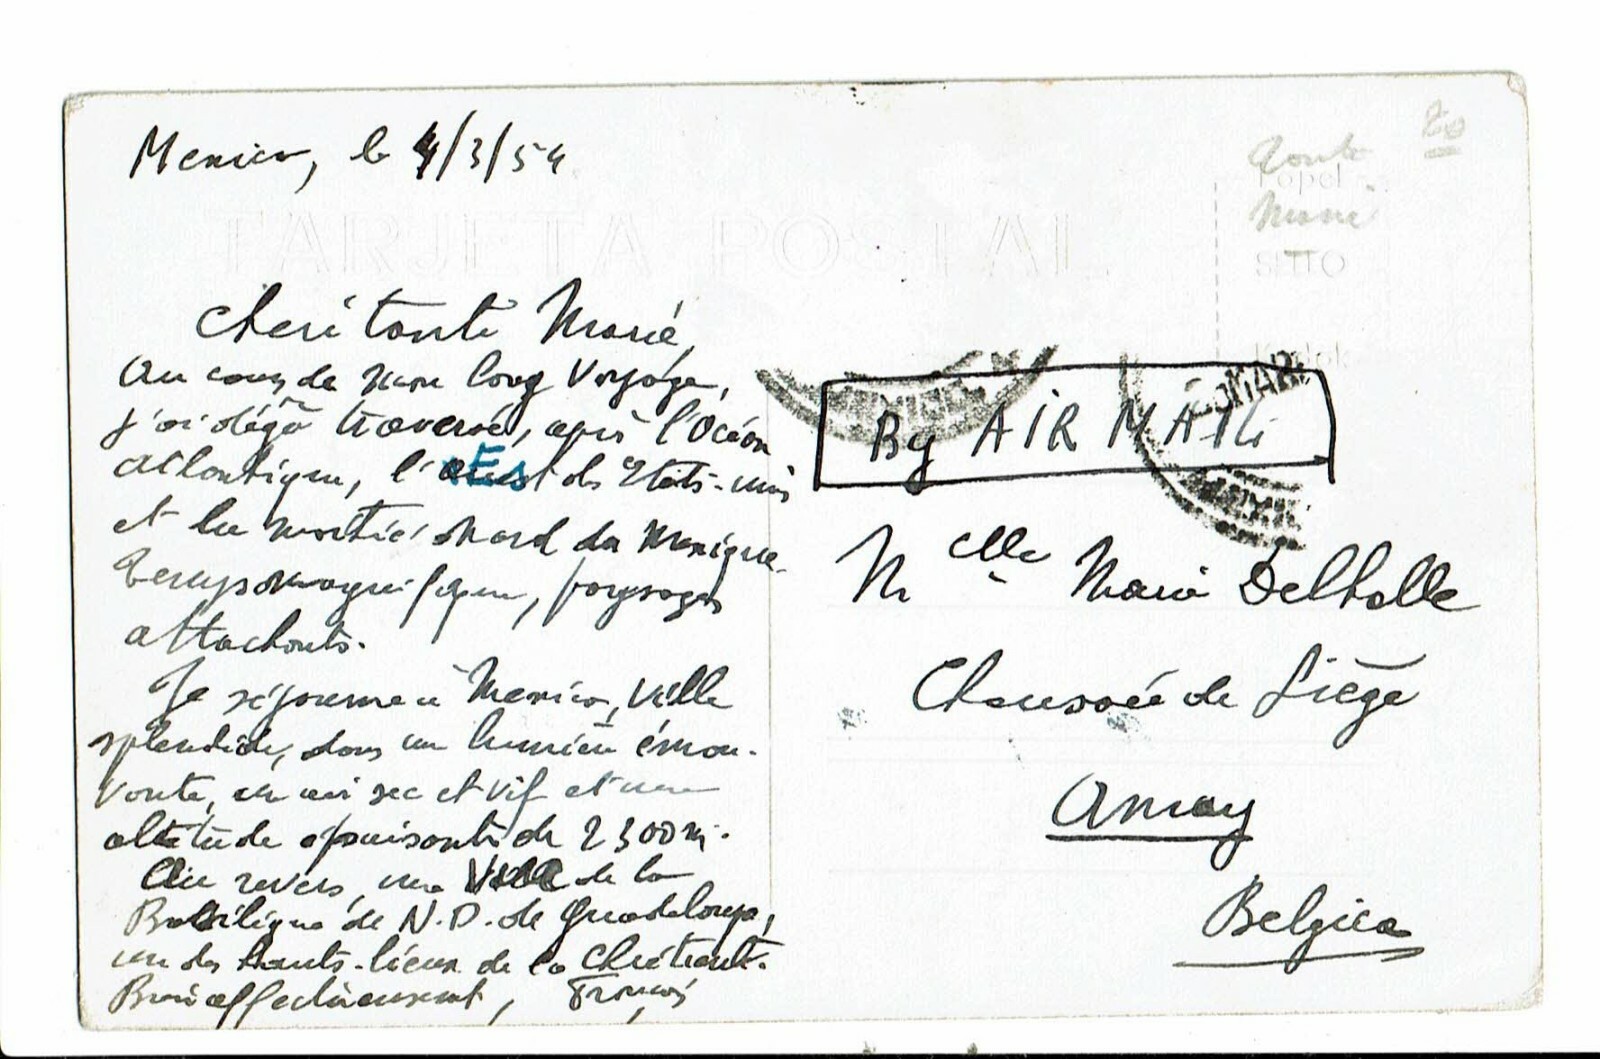 Mexico, le 4/3/54.
TARJETA POSTAL
Kodak
SELLO
Cheri tante Marie,
Au cours de mon long voyage,
j'ai déjà traversé, après l'Océan
Atlantique, l'Est des Etats-Unis
et la moitié Nord du Mexique.
Temps magnifique, paysages
attachants.
Je séjourne à Mexico, ville
splendide, dans une lumière émou-
vante, un air sec et vif et une
altitude épuisante de 2300 m.
Au revers, une vue de la
Basilique de N.D. de Guadeloupe,
un des hauts-lieux de la Chrétienté.
Bien affectueusement, François
By AIR MAIL
Mlle Marie Delhalle
Chaussée de Liège
Amay
Belgica